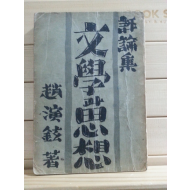 評論集
文學思想
趙演鉉著